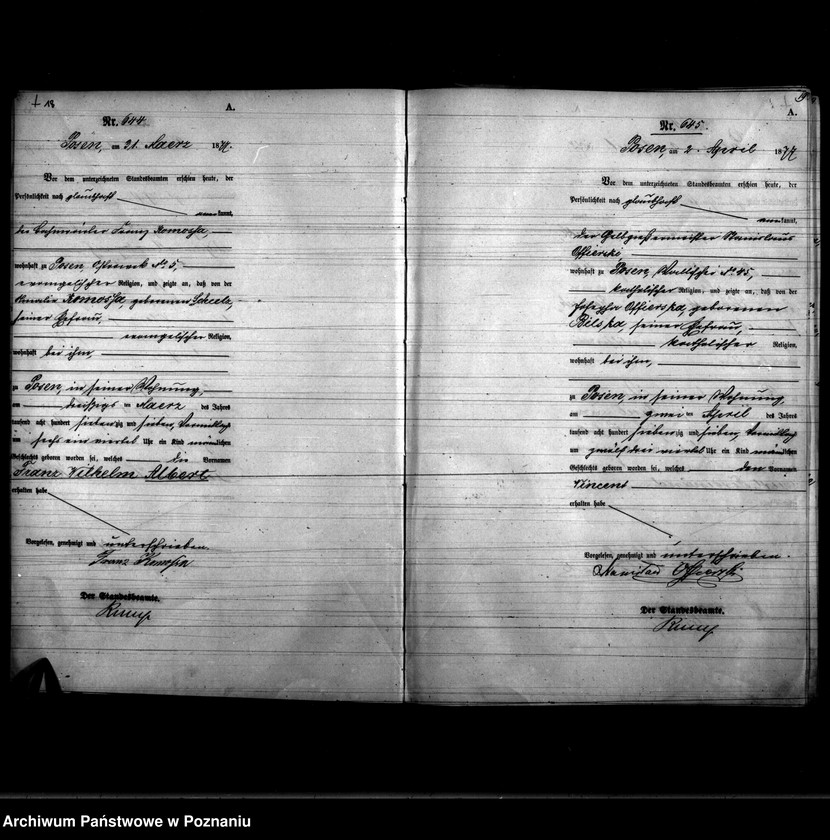 18
A.
Nr. 644
Posen, am 31. Maerz 1877.
Vor dem unterzeichneten Standesbeamten erschien heute, der
Persönlichkeit nach glaubhaft
kannt,
der Franz Komossa,
wohnhaft zu Posen, No 5,
evangelischer Religion, und zeigte an, daß von der
Komossa, geborenen
seiner Ehefrau,
evangelischer Religion,
wohnhaft bei ihm,
zu Posen, in seiner Wohnung,
am dreißigs ten Maerz des Jahres
tausend acht hundert siebenzig und sieben, Vormittags
um sechs ein viertel Uhr ein Kind männlichen
Geschlechts geboren worden sei, welches die Vornamen
Franz Wilhelm Albert
erhalten habe
Vorgelesen, genehmigt und unterschrieben.
Franz Komossa
Der Standesbeamte.
19
A.
Nr. 645.
Posen, am 2. April 1877
Vor dem unterzeichneten Standesbeamten erschien heute, der
Persönlichkeit nach glaubhaft
kannt,
der Gelbgießermeister Stanislaus
Offierski
wohnhaft zu Posen, Wallischei No 45,
katholischer Religion, und zeigte an, daß von der
Josepha Offierska, geborenen
Bilska, seiner Ehefrau,
katholischer Religion,
wohnhaft bei ihm,
zu Posen, in seiner Wohnung,
am zwei ten April des Jahres
tausend acht hundert siebenzig und sieben, Vormittags
um zwölf drei viertel Uhr ein Kind männlichen
Geschlechts geboren worden sei, welches den Vornamen
Vincent
erhalten habe
Vorgelesen, genehmigt und unterschrieben.
Stanislaus
Der Standesbeamte.
Archiwum Państwowe w Poznaniu